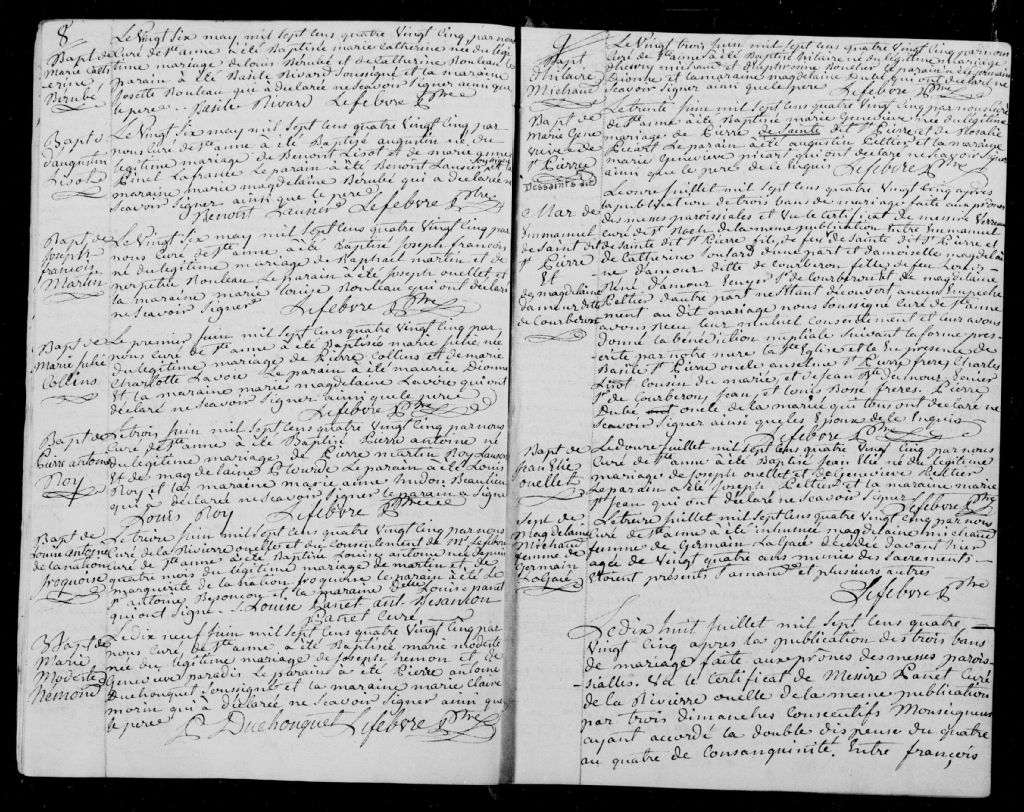 8
Bapt de
Marie Cath
erine
Bérubé
Le Vingt Six may mil Sept Cens quatre Vingt Cinq par nous
Curé de Ste anne à été Baptisée marie Catherine née du légi
time mariage de louis Bérubé et de Catherine Rouleau le
parain à été Basile Rivard Soussigné et la maraine
Josette Rouleau qui à déclarée ne Scavoir Signer ainsi que
le pere. Basile Rivard Lefebvre Ptre
Bapt
d'augustin
Lizot
Le Vingt Six may mil Sept Cens quatre Vingt Cinq par
nous Curé de Ste anne à été Baptisé augustin né du
légitime mariage de Benoni Lizot et de marie anne
Pinel Lafrance Le parain à été Benoni Lausier Soussigné et la
maraine marie magdelaine Bérubé qui à déclarée ne
Scavoir Signer ainsi que le pere
Benoni Lausier Lefebvre Ptre
Bapt de
Joseph
françois
Martin
Le Vingt Six may mil Sept Cens quatre Vingt Cinq par
nous Curé de Ste anne, à été Baptisé Joseph françois
né du légitime mariage de Raphael martin et de
perpetue Rouleau Le parain à été Joseph ouellet et
la maraine marie louize Rouleau qui ont déclaré
ne Scavoir Signer Lefebvre Ptre
Bapt de
Marie Julie
Collins
Le premier Juin mil Sept Cens quatre Vingt Cinq par
nous Curé de Ste anne à été Baptisée marie Julie née
du légitime mariage de Pierre Collins et de marie
Charlotte Lavoie Le parain à été maurice Dionne
Et la maraine marie magdelaine Lavoie qui ont
déclaré ne Scavoir Signer ainsi que le pere
Lefebvre Ptre
Bapt de
Pierre antoine
Roy
Le trois Juin mil Sept Cens quatre Vingt Cinq par nous
Curé de Ste anne à été Baptisé Pierre antoine né
du légitime mariage de Pierre martin Roy Lauson
Et de magdelaine Plourde Le parain à été Louis
Roy et la maraine marie anne hudon Beaulieu
qui à déclarée ne Scavoir Signer le parain à Signé
Louis Roy Lefebvre Ptre
Bapt de
Louise antoine
de la nation
Iroquoise
Le treize Juin mil Sept Cens quatre Vingt Cinq par nous
Curé de la Rivierre ouelle et du Consentement de Mr Lefebvre
Curé de Ste anne à été Baptisée Louise antoine née depuis
quatre mois du légitime mariage de martin et de
marguerite de la nation Iroquoise le parain à été Le
Sr antoine Besancon et la maraine Delle Louise panet
qui ont Signé. Louise Panet ant Besancon
Panet Curé
Bapt de
Marie
Modeste
Nemond
Le dix neuf Juin mil Sept Cens quatre Vingt Cinq par
nous Curé de Ste anne à été Baptisée marie modeste
née du légitime mariage de Joseph Nemon et de
Genevieve paradis Le parain à été Pierre antoine
Duchouquet Soussigné et la maraine marie Claire
morin qui à déclarée ne Scavoir Signer ainsi que
le pere
P Duchouquet Lefebvre Ptre
9
Bapt
d'hilaire
Michaud
Le Vingt trois Juin mil Sept Cens quatre Vingt Cinq par nous
Curé de Ste anne à été Baptisé hilaire né du légitime mariage
Dionne et la maraine magdelaine Dubé qui ont déclaré ne
Scavoir Signer ainsi que le pere Lefebvre Ptre
Bapt de
Marie Gene
vieve de
St Pierre
Dessaints dit
Le trente Juin mil Sept Cens quatre Vingt Cinq par nous Curé
de Ste anne à été Baptisée marie Genevieve née du légitime
mariage de Pierre de Sainte dit St Pierre et de Rosalie
Picart Le parain à été augustin Peltier et la maraine
marie Genevieve picart qui ont déclaré ne Scavoir Signer
ainsi que le pere de ce Enquis Lefebvre Ptre
Mar de
Emmanuel
de Saint dit
St Pierre
Et
de magdelaine
d'amour ditte
de Courberon
Le onze Juillet mil Sept Cens quatre Vingt Cinq après
la publication de trois bans de mariage faite aux prônes
des messes paroissiales et Vu le Certificat de messire Verreau
curé de St Roch de la meme publication Entre Emmanuel
de Sainte dit St Pierre fils de feu de Sainte dit St Pierre et
de Catherine Soulard d'une part et damoiselle magdelaine
d'amour ditte de Courberon fille de feu Louis
René d'amour Ecuyer Sr de Courberon et de magdelaine
Peltier d'autre part ne S'Etant découvert aucun Empeche
ment au dit mariage nous Soussigné Curé de Ste anne
avons Recu leur mutuel Consentement et leur avons
donné la bénédiction nuptiale Suivant la forme pres
crite par notre mere la Ste Eglise et En présence de
Basile St Pierre oncle anselme St Pierre frere, Charles
Lizot Cousin du marié, et de Jean Bte damour, Ecuier
Sr de Courberon, Jean, et Louis Bossé freres. Pierre
Dubé oncle de la mariée qui tous ont déclaré ne
Scavoir Signer ainsi que les Epoux de ce Enquis
Lefebvre Ptre
Bapt de
Jean Elie
ouellet
Le douze Juillet mil Sept Cens quatre Vingt Cinq par nous
Curé de Ste anne à été Baptisé Jean Elie né du légitime
mariage de Joseph ouellet et de Genevieve Peltier
Le parain a été Joseph Peltier et la maraine marie
St Jean qui ont déclaré ne Scavoir Signer Lefebvre Ptre
Sept de
Magdelaine
Michaud
femme de
Germain
Lagacé
Le treize Juillet mil Sept Cens quatre Vingt Cinq par nous
Curé de Ste anne à été inhumée magdelaine michaud
femme de Germain Lagacé décédée d'avant hier
agée de Vingt quatre ans munie des Sacremens.
Etoient présents St amand et plusieurs autres
Lefebvre Ptre
Le dix huit Juillet mil Sept Cens quatre
Vingt Cinq après la publication des trois bans
de mariage faite aux prônes des messes parois
sialles. Vu le Certificat de Mesire Panet Curé
de la Rivierre ouelle de la meme publication
par trois dimanches Consecutifs Monseigneur
ayant accordé la double dispense du quatre
au quatre de Consanguinité. Entre françois